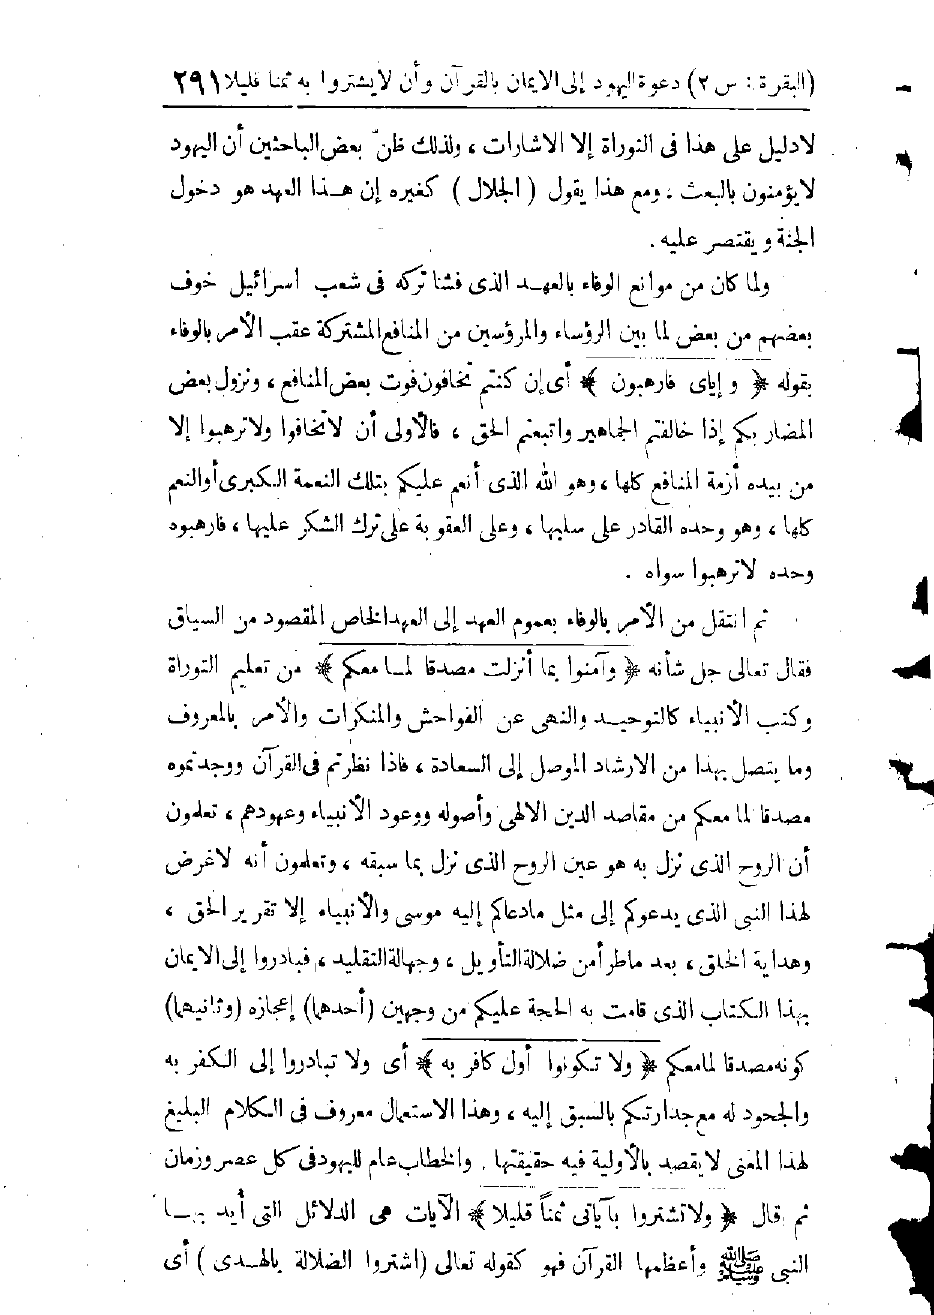 (البقرة : س ٢) دعوة اليهود إلى الايمان بالقرآن وأن لايشتروا به ثمنا قليلا ٢٩١
لادليل على هذا فى التوراة إلا الاشارات ، ولذلك ظنّ بعض الباحثين أن اليهود
لا يؤمنون بالبعث . ومع هذا يقول ( الجلال ) كغيره إن هذا العهد هو دخول
الجنة ويقتصر عليه .
ولما كان من موانع الوفاء بالعهد الذى فشا تركه فى شعب اسرائيل خوف
بعضهم من بعض لما بين الرؤساء والمرؤسين من المنافع المشتركة عقب الأمر بالوفاء
بقوله ﴿ وإياى فارهبون ﴾ أى إن كنتم تخافون فوت بعض المنافع ، ونزول بعض
المضار بكم إذا خالفتم الجماهير واتبعتم الحق ، فالأولى أن لاتخافوا ولا ترهبوا إلا
من بيده أزمة المنافع كلها ، وهو الله الذى أنعم عليكم بتلك النعمة الكبرى أوالنعم
كلها ، وهو وحده القادر على سلبها ، وعلى العقوبة على ترك الشكر عليها ، فارهبوه
وحده لا ترهبوا سواه .
ثم انتقل من الأمر بالوفاء بعموم العهد إلى العهد الخاص المقصود من السياق
فقال تعالى جل شأنه ﴿ وآمنوا بما أنزلت مصدقا لما معكم ﴾ من تعليم التوراة
وكتب الأنبياء كالتوحيد والنهى عن الفواحش والمنكرات والأمر بالمعروف
وما يتصل بهذا من الارشاد الموصل إلى السعادة ، فاذا نظرتم فى القرآن ووجدتموه
مصدقا لما معكم من مقاصد الدين الالهى وأصوله ووعود الأنبياء وعهودهم ، تعلمون
أن الروح الذى نزل به هو عين الروح الذى نزل بما سبقه ، وتعلمون أنه لا غرض
لهذا النبى الذى يدعوكم إلى مثل مادعاكم إليه موسى والأنبياء إلا تقرير الحق ،
وهداية الخلق ، بعد ماطرأ من ضلالة التأويل ، وجهالة التقليد ، فبادروا إلى الايمان
بهذا الكتاب الذى قامت به الحجة عليكم من وجهين (أحدهما) إعجازه (وثانيهما)
كونه مصدقا لما معكم ﴿ ولا تكونوا أول كافر به ﴾ أى ولا تبادروا إلى الكفر به
والجحود له مع جدارتكم بالسبق إليه ، وهذا الاستعمال معروف فى الكلام البليغ
لهذا المعنى لا يقصد بالأولية فيه حقيقتها . والخطاب عام لليهود فى كل عصر وزمان
ثم قال ﴿ ولا تشتروا بآياتى ثمناً قليلا ﴾ الآيات هى الدلائل التى أيد بهـا
النبى ﷺ وأعظمها القرآن فهو كقوله تعالى (اشتروا الضلالة بالهدى ) أى